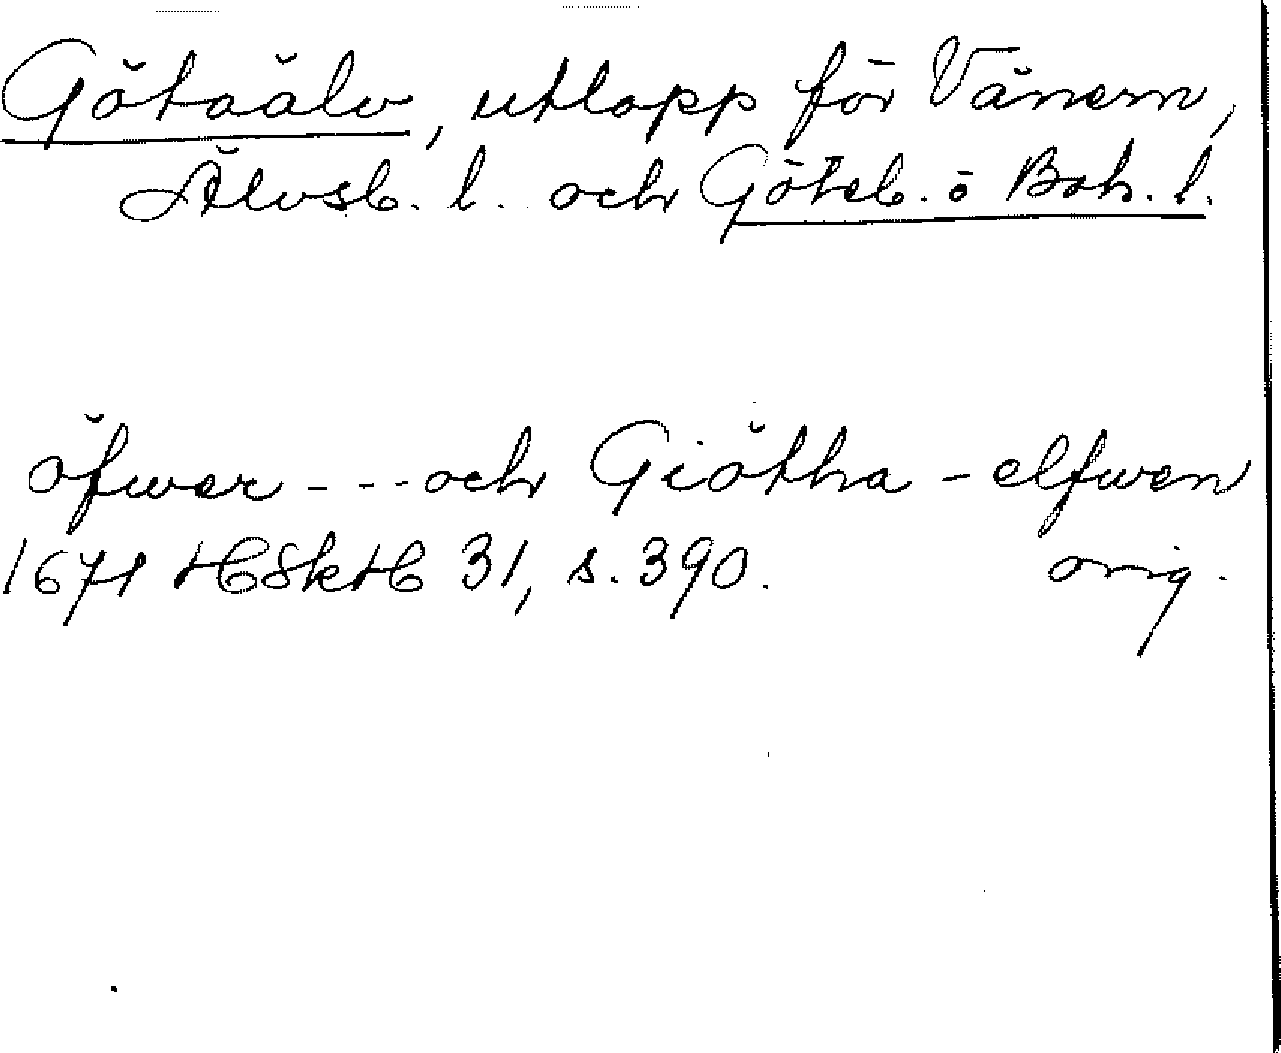 Götaälv, utlopp för Vänern,
Älvsb. l. och Göteb. o Boh. l.
öfwer - - - och Giötha - elfwen
1671 HSkH 31, s. 390. orig.